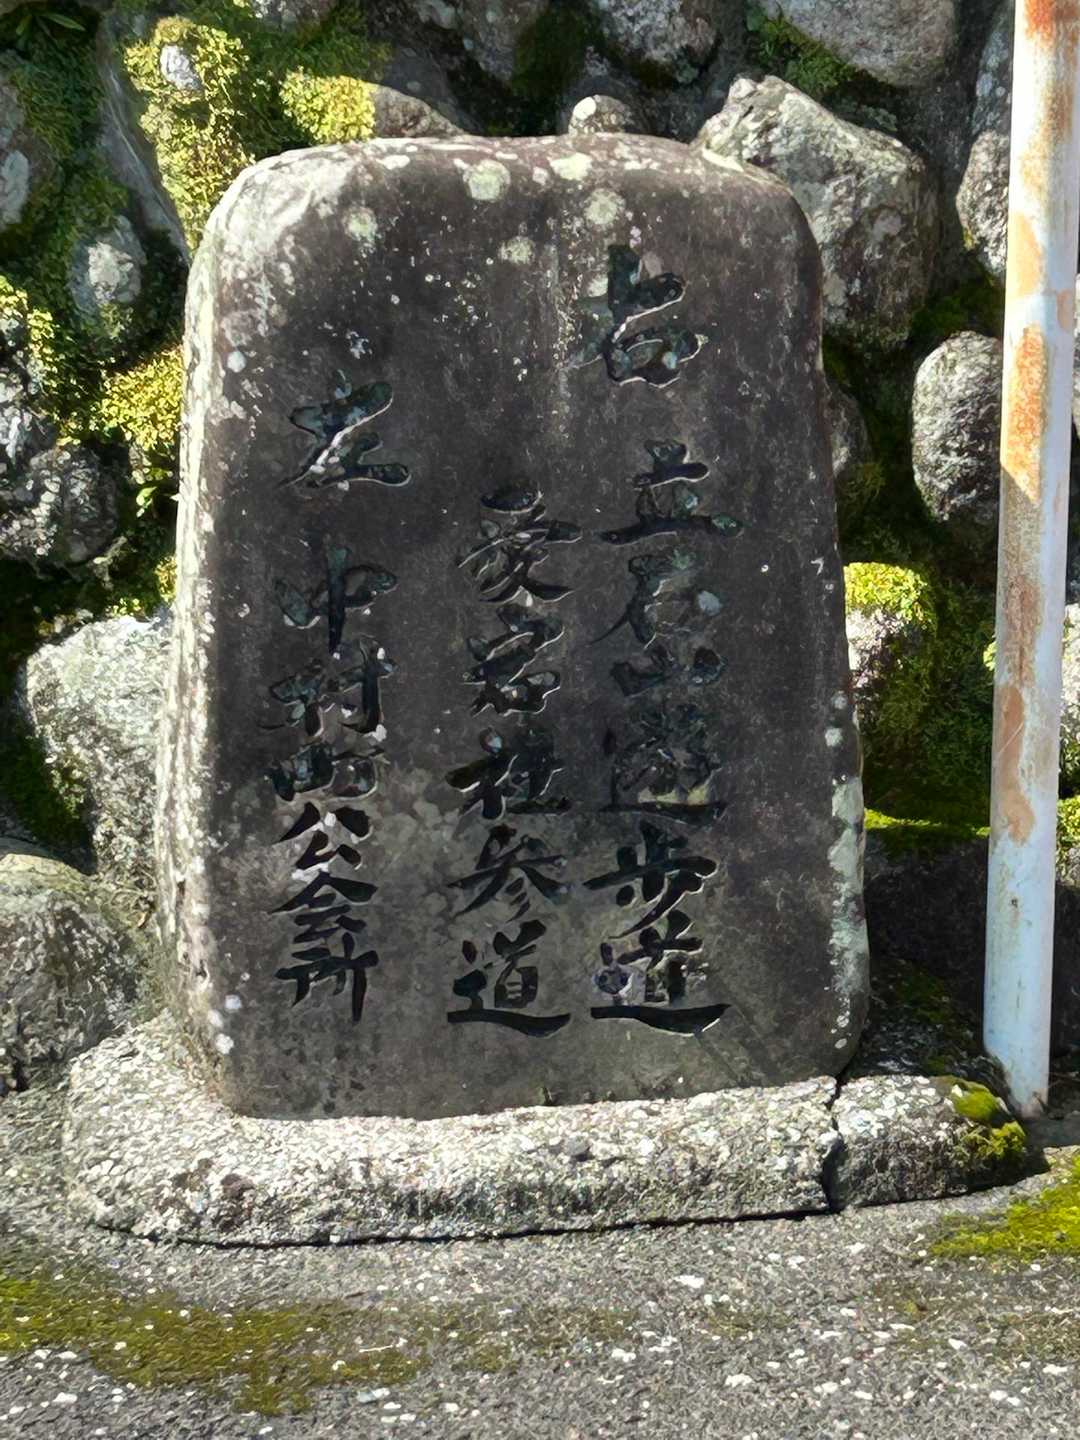 右 立石山遊歩道
愛宕社参道
左 中村町公会所